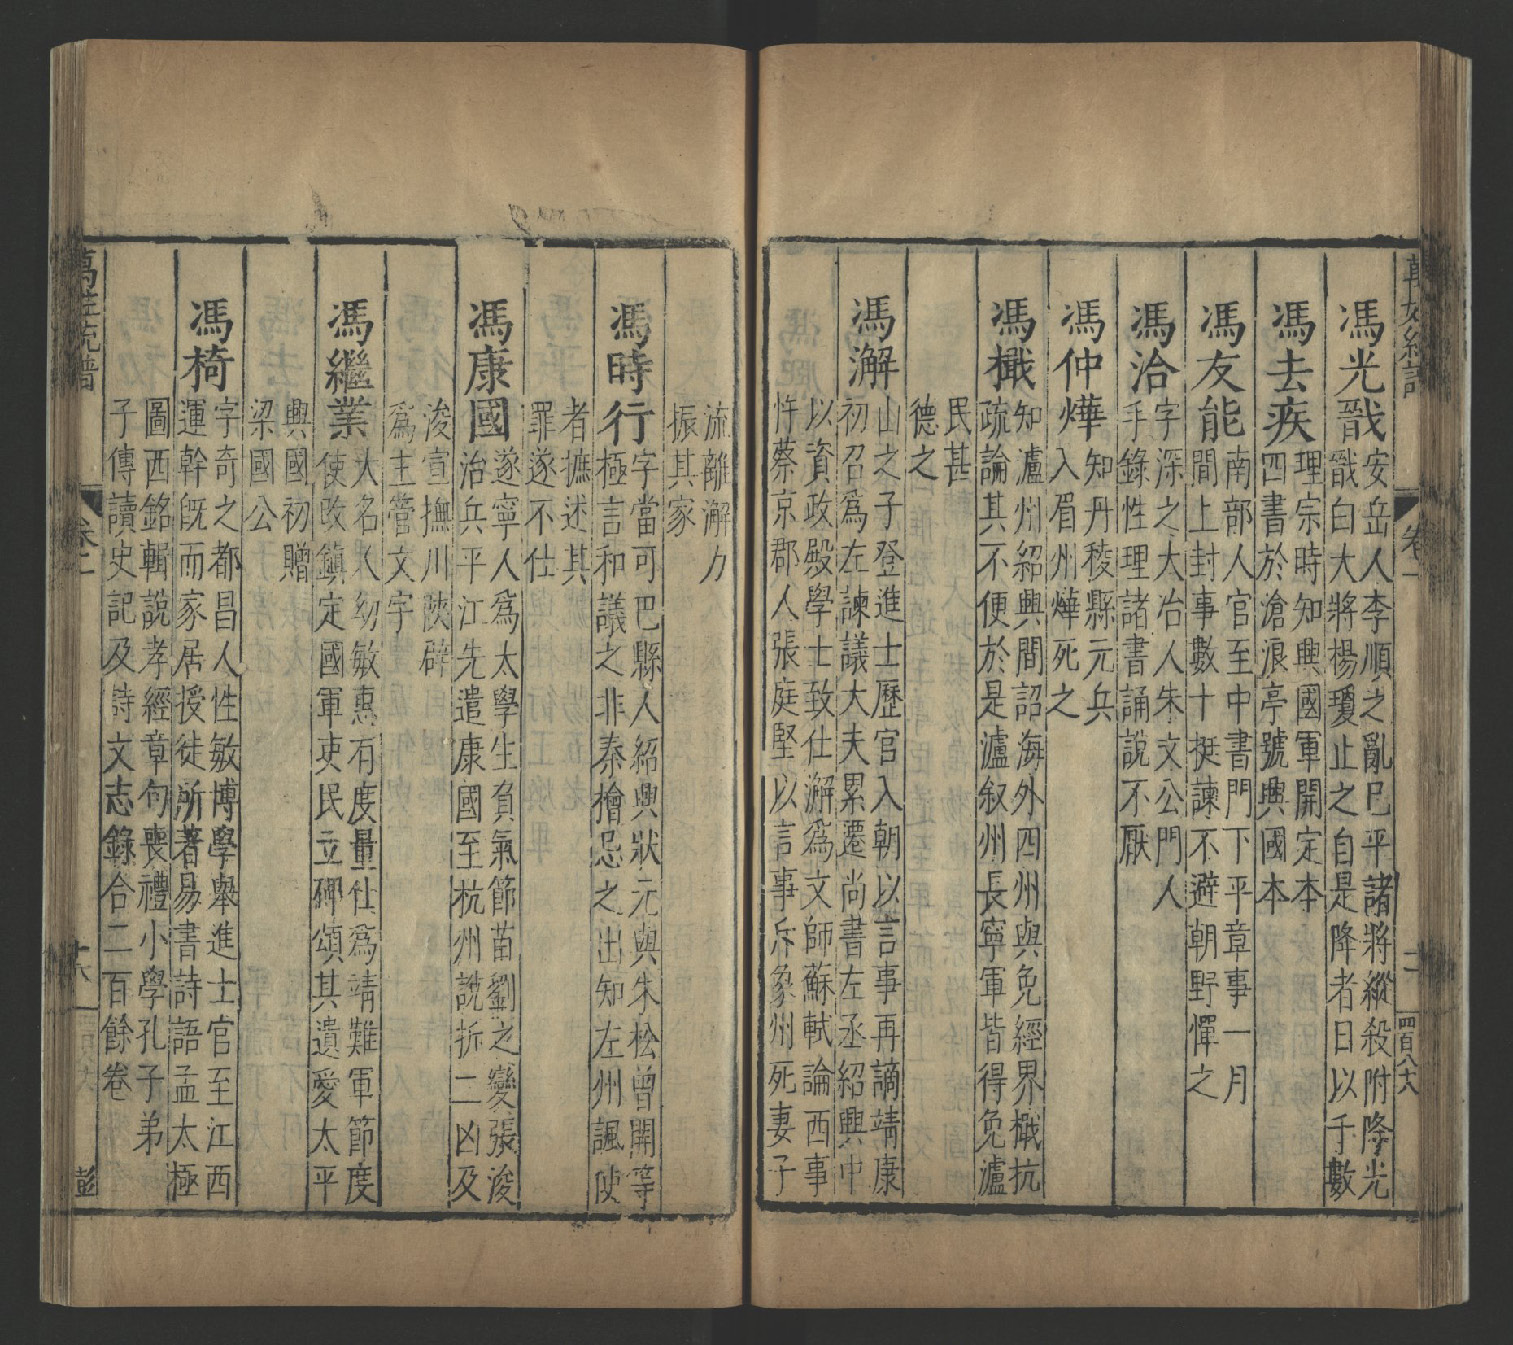 馮光戩安岳人李順之亂巳平諸將縱殺附降光
戩白大將楊瓊止之自是降者日以千數
馮去疾理宗時知興國軍開定本
四書於滄浪亭號興國本
馮友能南部人官至中書門下平章事一月
間上封事數十挺諫不避朝野憚之
馮洽字深之大冶人朱文公門人
手錄性理諸書誦說不厭
馮仲燁知丹稜縣元兵
入眉州燁死之
馮檝知瀘州紹興間詔海外四州與免經界檝抗
疏論其不便於是瀘叙州長寧軍皆得免瀘
民甚
德之
馮澥山之子登進士歷官入朝以言事再謫靖康
初召爲左諫議大夫累遷尚書左丞紹興中
以資政殿學士致仕澥爲文師蘇軾論西事
忤蔡京郡人張庭堅以言事斥象州死妻子
流離澥力
振其家
馮時行字當可巴縣人紹興狀元與朱松曾開等
極言和議之非秦檜忌之出知左州諷使
者摭述其
罪遂不仕
馮康國遂寧人爲太學生負氣節苗劉之變張浚
治兵平江先遣康國至杭州說折二凶及
浚宣撫川陝辟
爲主管文字
馮繼業大名人幼敏惠有度量仕爲靖難軍節度
使改鎮定國軍吏民立碑頌其遺愛太平
興國初贈
梁國公
馮椅字奇之都昌人性敏博學舉進士官至江西
運幹旣而家居授徒所著易書詩語孟太極
圖西銘輯說孝經章句喪禮小學孔子弟
子傳讀史記及詩文志錄合二百餘卷
萬姓統譜
卷一
十八
彭